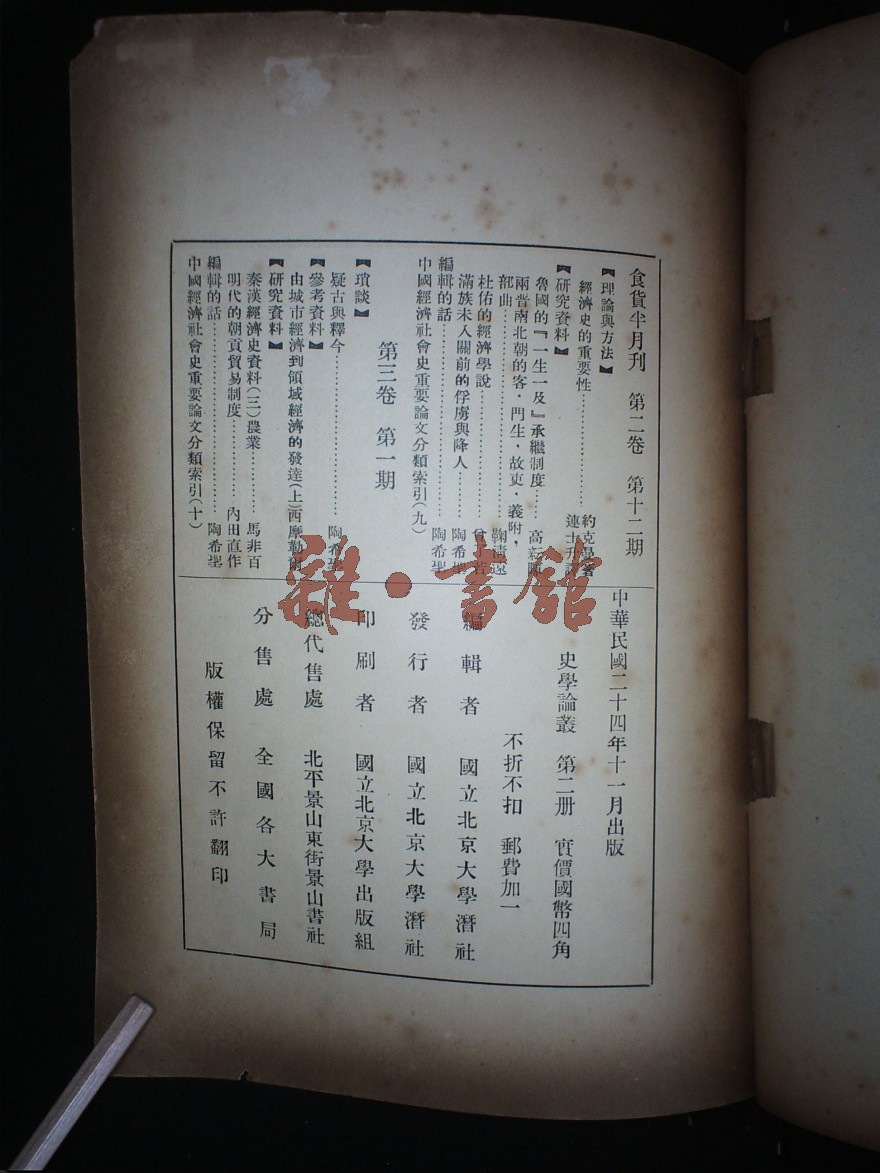 食貨半月刊 第二卷 第十二期
【理論與方法】
經濟史的重要性…………約克曼著
連士升譯
【研究資料】
魯國的『一生一及』承繼制度……高
兩晉南北朝的客，門生，故吏，義附，
部曲…………鞠清遠
杜佑的經濟學說…………曾了若
滿族未入關前的俘虜與降人…………陶希聖
編輯的話…………陶希聖
中國經濟社會史重要論文分類索引(九)
第三卷 第一期
【瑣談】
疑古與釋今…………陶希聖
【參考資料】
由城市經濟到領域經濟的發達(上)西摩勒爾
【研究資料】
秦漢經濟史資料(三)農業…………馬非百
明代的朝貢貿易制度…………內田直作
編輯的話…………陶希聖
中國經濟社會史重要論文分類索引(十)
中華民國二十四年十一月出版
史學論叢 第二册 實價國幣四角
不折不扣 郵費加一
編輯者 國立北京大學潛社
發行者 國立北京大學潛社
印刷者 國立北京大學出版組
總代售處 北平景山東街景山書社
分售處 全國各大書局
版權保留不許翻印
雜·書館